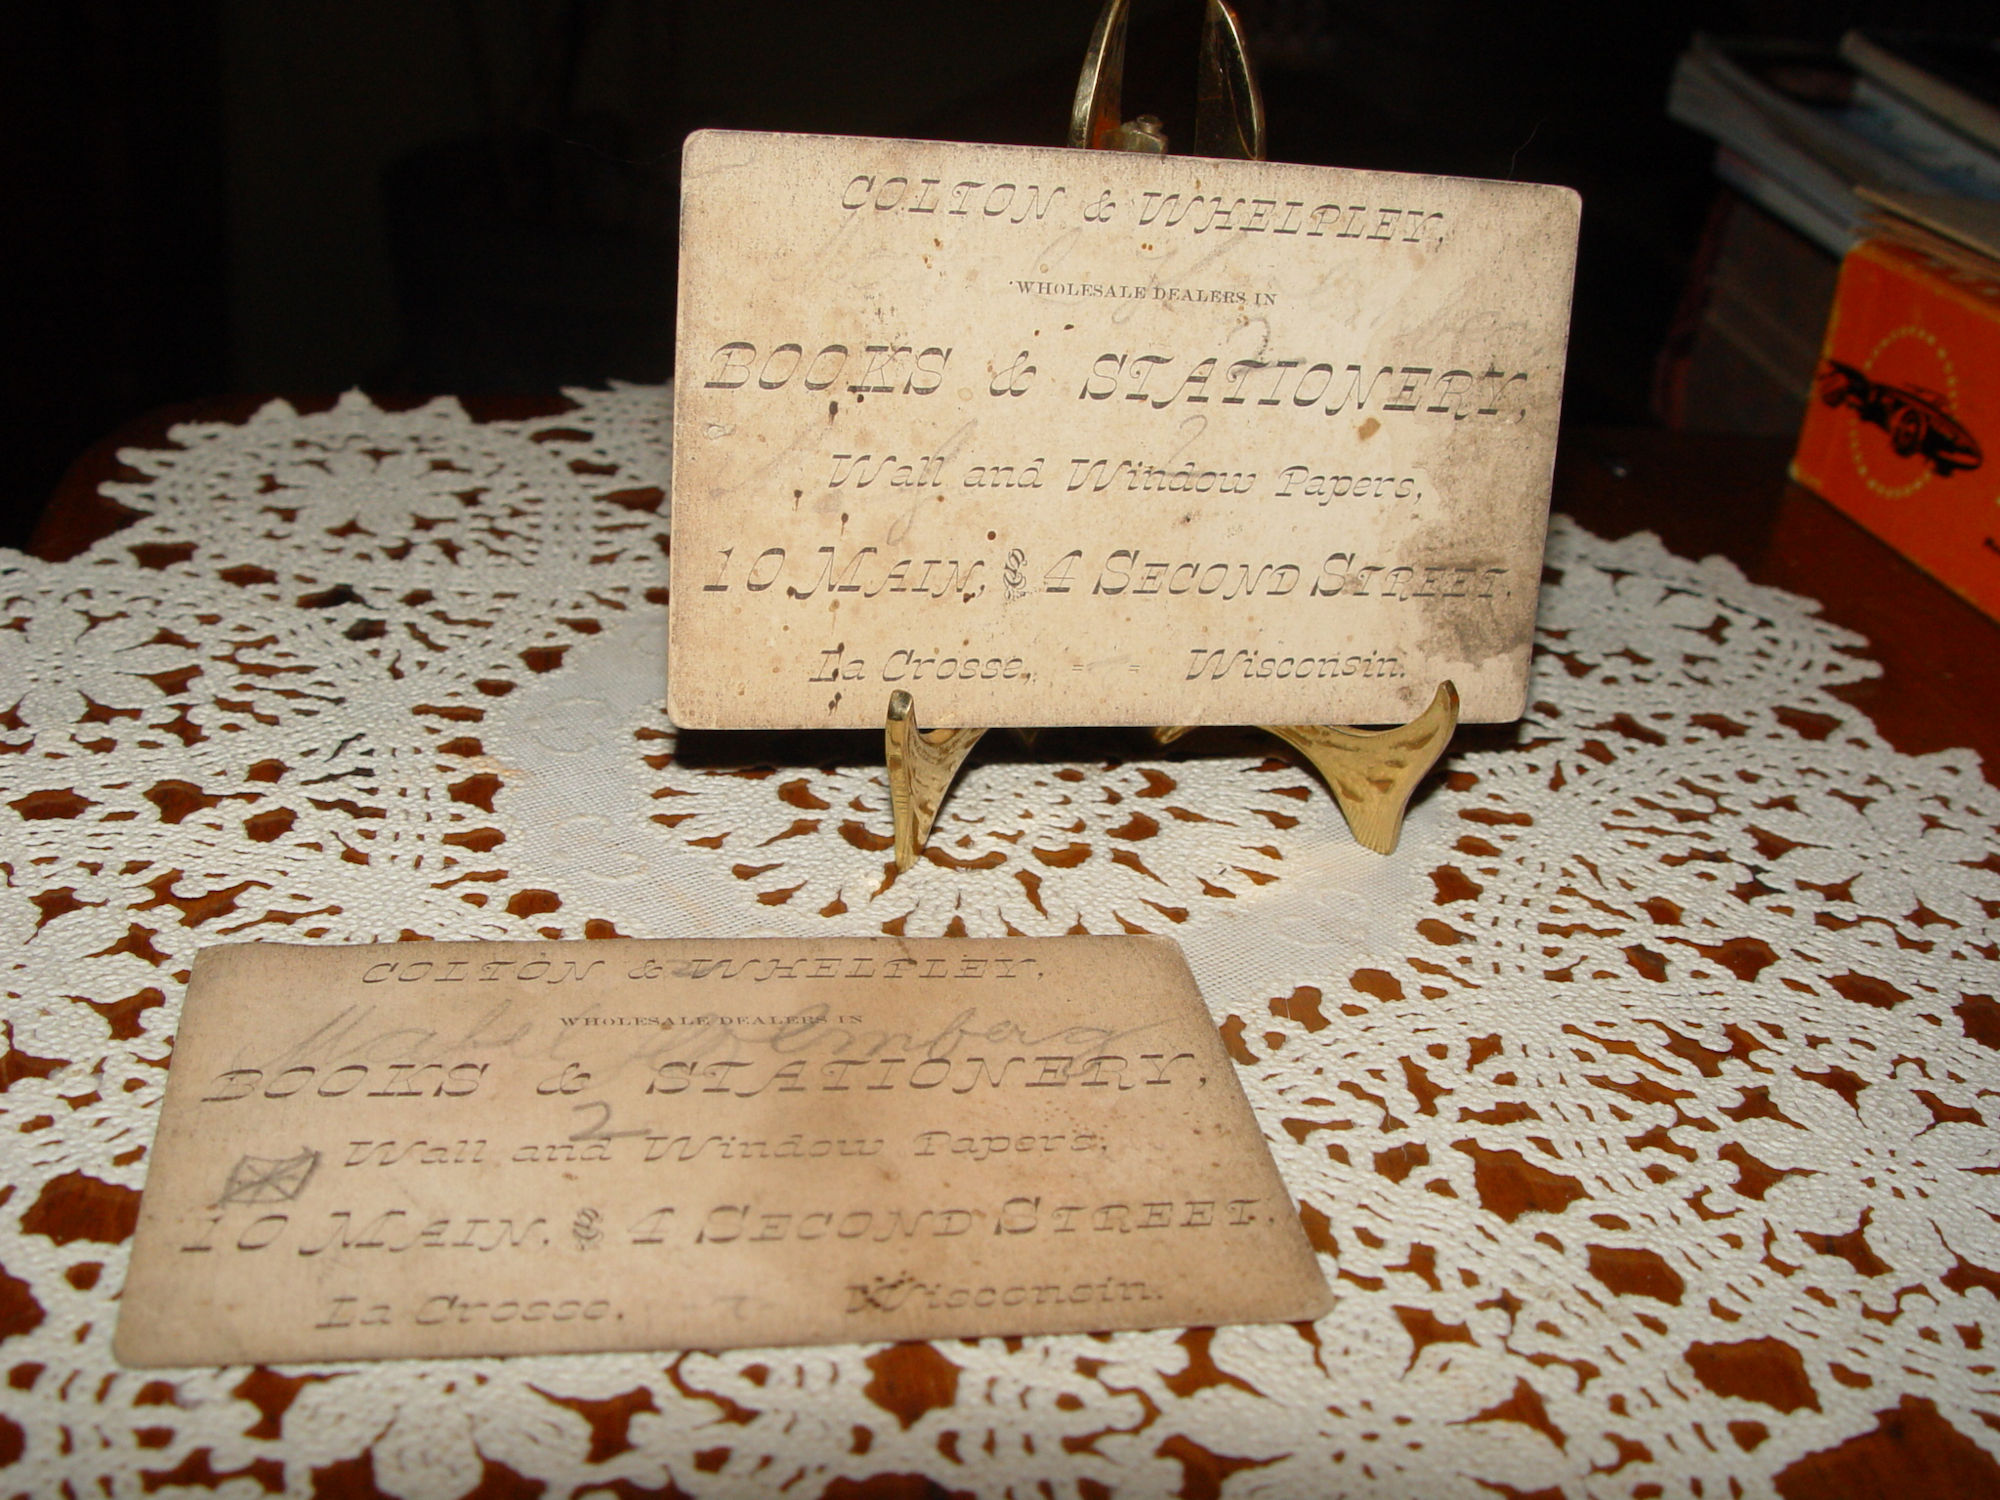 COLTON & WHELPLEY,
WHOLESALE DEALERS IN
BOOKS & STATIONERY,
2
Wall and Window Papers,
2
10 MAIN, & 4 SECOND STREET.
La Crosse, - - Wisconsin.
COLTON & WHELPLEY,
WHOLESALE DEALERS IN
Mabel Holmberg
BOOKS & STATIONERY,
2
Wall and Window Papers,
10 MAIN, & 4 SECOND STREET.
La Crosse, - Wisconsin.